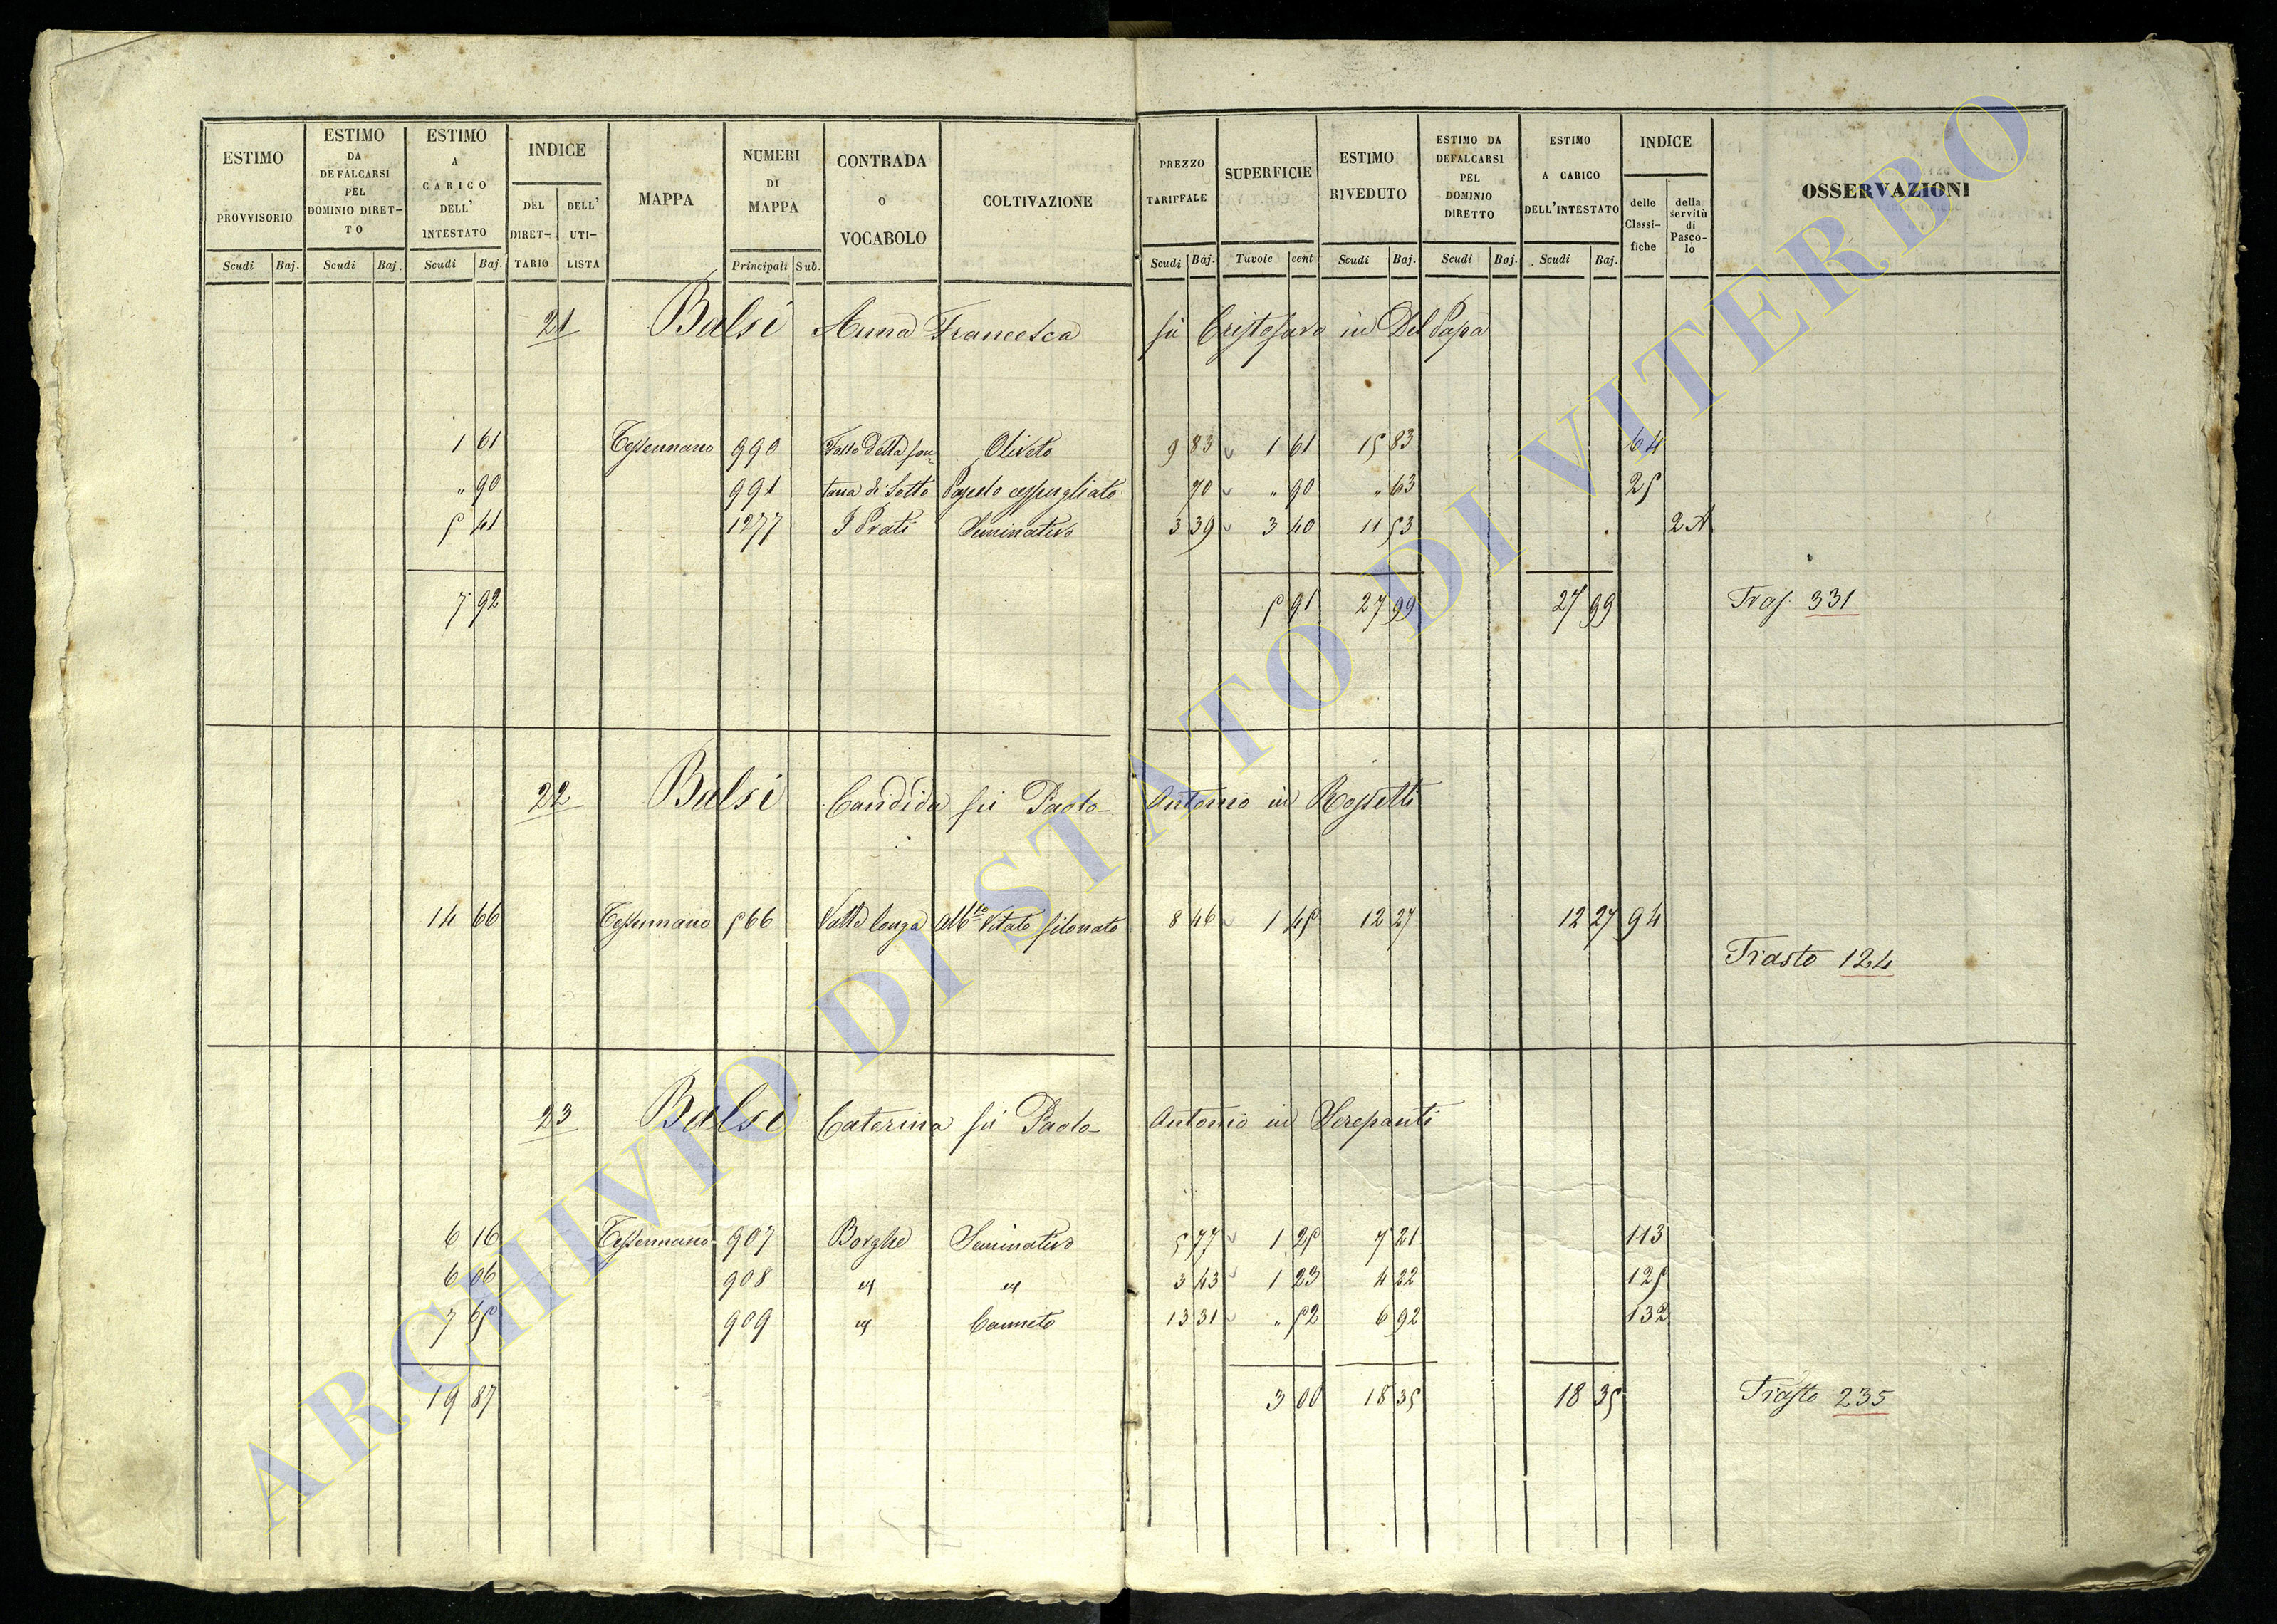 ESTIMO PROVVISORIO | ESTIMO DA DEFALCARSI PEL DOMINIO DIRET-TO | ESTIMO A CARICO DELL' INTESTATO | INDICE DEL DIRET-TARIO | DELL' UTI-LISTA | MAPPA | NUMERI DI MAPPA | CONTRADA O VOCABOLO | COLTIVAZIONE | PREZZO TARIFFALE | SUPERFICIE | ESTIMO RIVEDUTO | ESTIMO DA DEFALCARSI PEL DOMINIO DIRETTO | ESTIMO A CARICO DELL'INTESTATO | INDICE delle Classi-fiche | della servitù di Pasco-lo | OSSERVAZIONI
Scudi Baj. Scudi Baj. Scudi Baj. Principali Sub. Scudi Baj. Tavole cent Scudi Baj. Scudi Baj. Scudi Baj.
21 Balsi Anna Francesca fu Cristofaro in Del Papa
1 61 Tessennano 990 Fosso della fon- Oliveto 9 83 1 61 15 83 64
" 90 991 tana di Sotto Pascolo cespugliato 70 " 90 " 63 25
5 41 1277 I Prati Seminativo 3 39 3 40 11 53 2 A
7 92 5 91 27 99 27 99 Tras. 331
22 Balsi Candida fu Paolo Antonio in Rossetti
14 66 Tessennano 566 Valle longa Alb.to Vitato filonato 8 46 1 45 12 27 12 27 94
Trasto 124
23 Balsi Caterina fu Paolo Antonio in Serepanti
6 16 Tessennano 907 Borghe Seminativo 5 77 1 25 7 21 113
6 06 908 3 43 1 23 4 22 125
7 65 909 Canneto 13 31 " 52 6 92 132
19 87 3 00 18 35 18 35 Trasto 235
ARCHIVIO DI STATO DI VITERBO